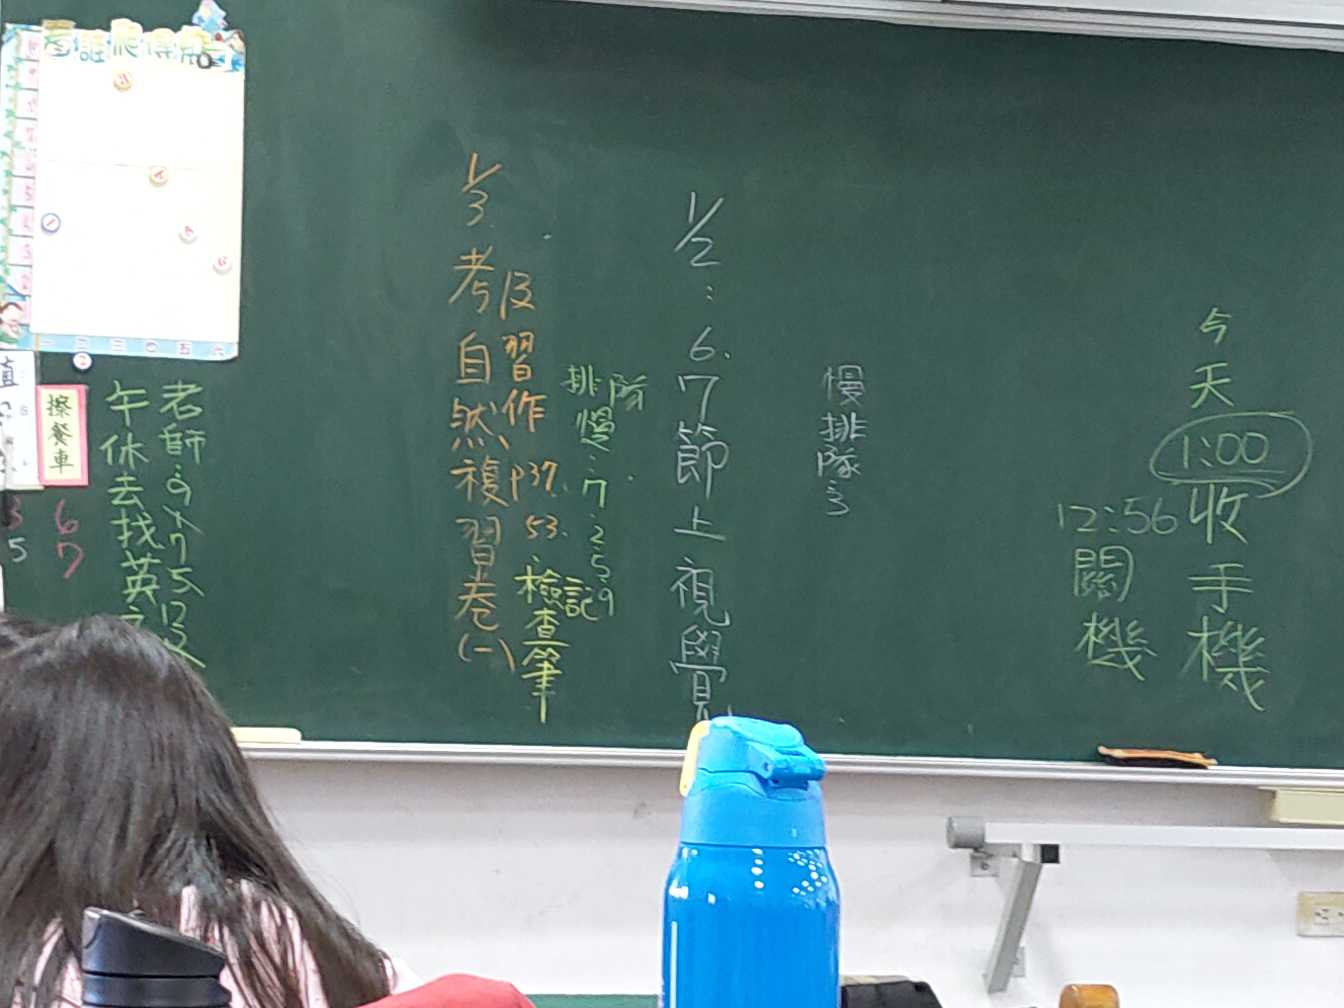 今天1:00收手機
12:56關機
慢排隊:3
1/2: 6.7節上視覺
排隊慢:7.2.5.9
1/3.考自然複習卷(一)
及習作p37.53.
檢查筆記
擦餐車
6
7
3
5
老師:
午休去找英
一二三四五六